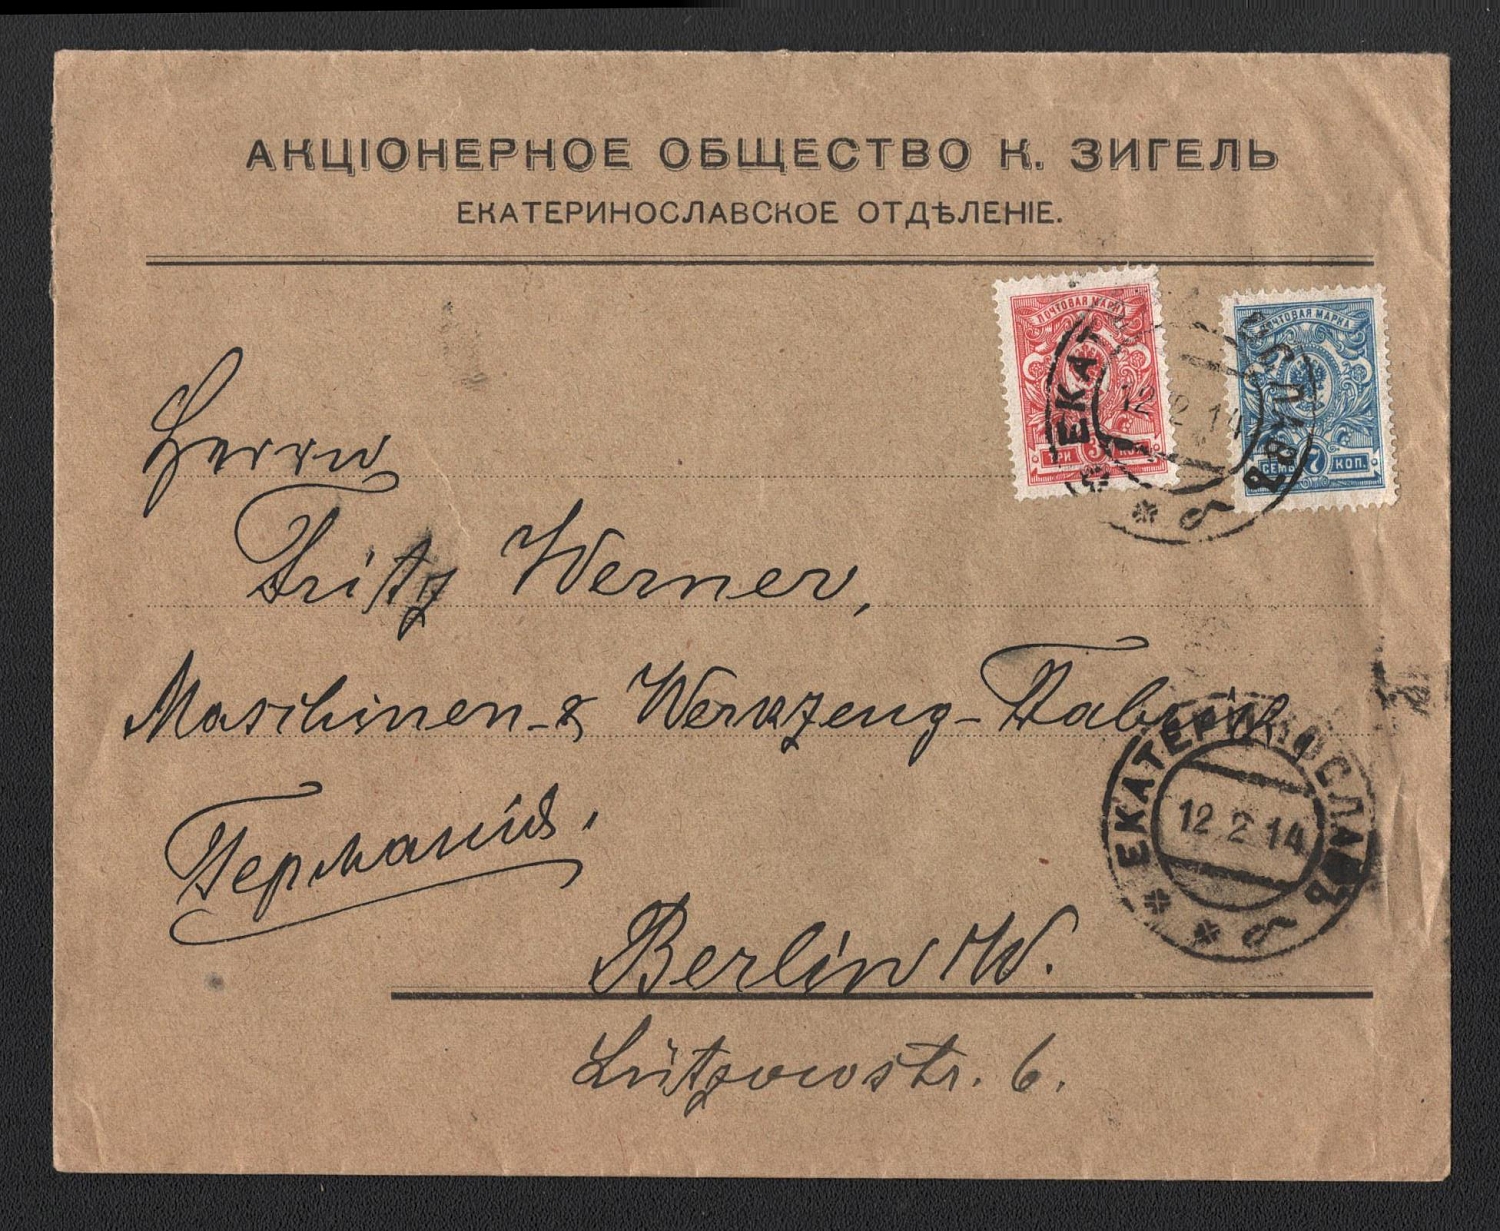 АКЦІОНЕРНОЕ ОБЩЕСТВО К. ЗИГЕЛЬ
ЕКАТЕРИНОСЛАВСКОЕ ОТДѢЛЕНІЕ.
ПОЧТОВАЯ МАРКА
ТРИ 3 КОП.
ПОЧТОВАЯ МАРКА
СЕМЬ 7 КОП.
ЕКАТ ОСЛАВЪ
12 2 14
б
Herrn
Fritz Werner,
Maschinen- & Werkzeug-Fabrik
ЕКАТЕРИНОСЛАВЪ
12 2 14
б
Германія.
Berlin W.
Lützowstr. 6.